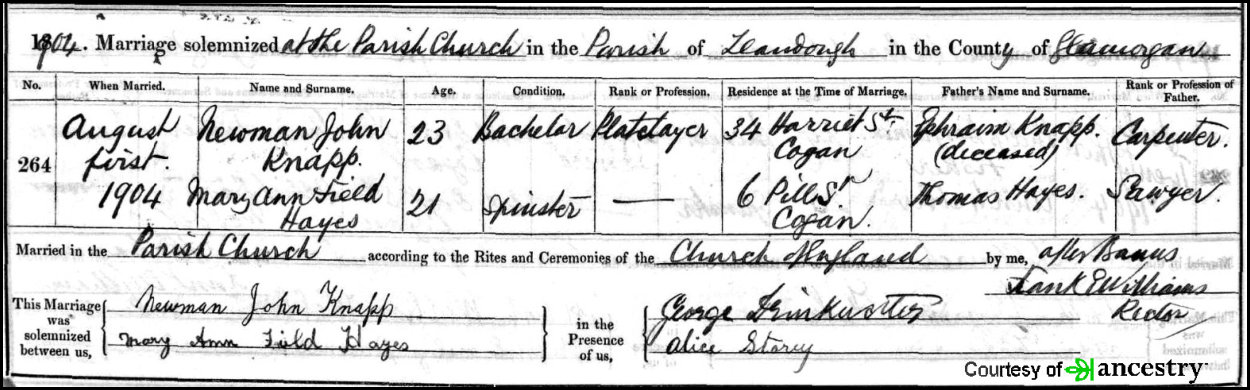 1904. Marriage solemnized at the Parish Church in the Parish of Llandough in the County of Glamorgan
No. When Married. Name and Surname. Age. Condition. Rank or Profession. Residence at the Time of Marriage. Father's Name and Surname. Rank or Profession of Father.
264
August first. 1904
Newman John Knapp. 23 Bachelor Platelayer 34 Harriet St. Cogan Ephraim Knapp. (deceased) Carpenter.
Mary Ann Field Hayes 21 Spinster — 6 Pill St. Cogan. Thomas Hayes. Sawyer.
Married in the Parish Church according to the Rites and Ceremonies of the Church of England by me, after Banns
Frank E Williams
Rector
This Marriage was solemnized between us,
Newman John Knapp
Mary Ann Field Hayes
in the Presence of us,
George Drinkwater
Alice Storey
Courtesy of ancestry